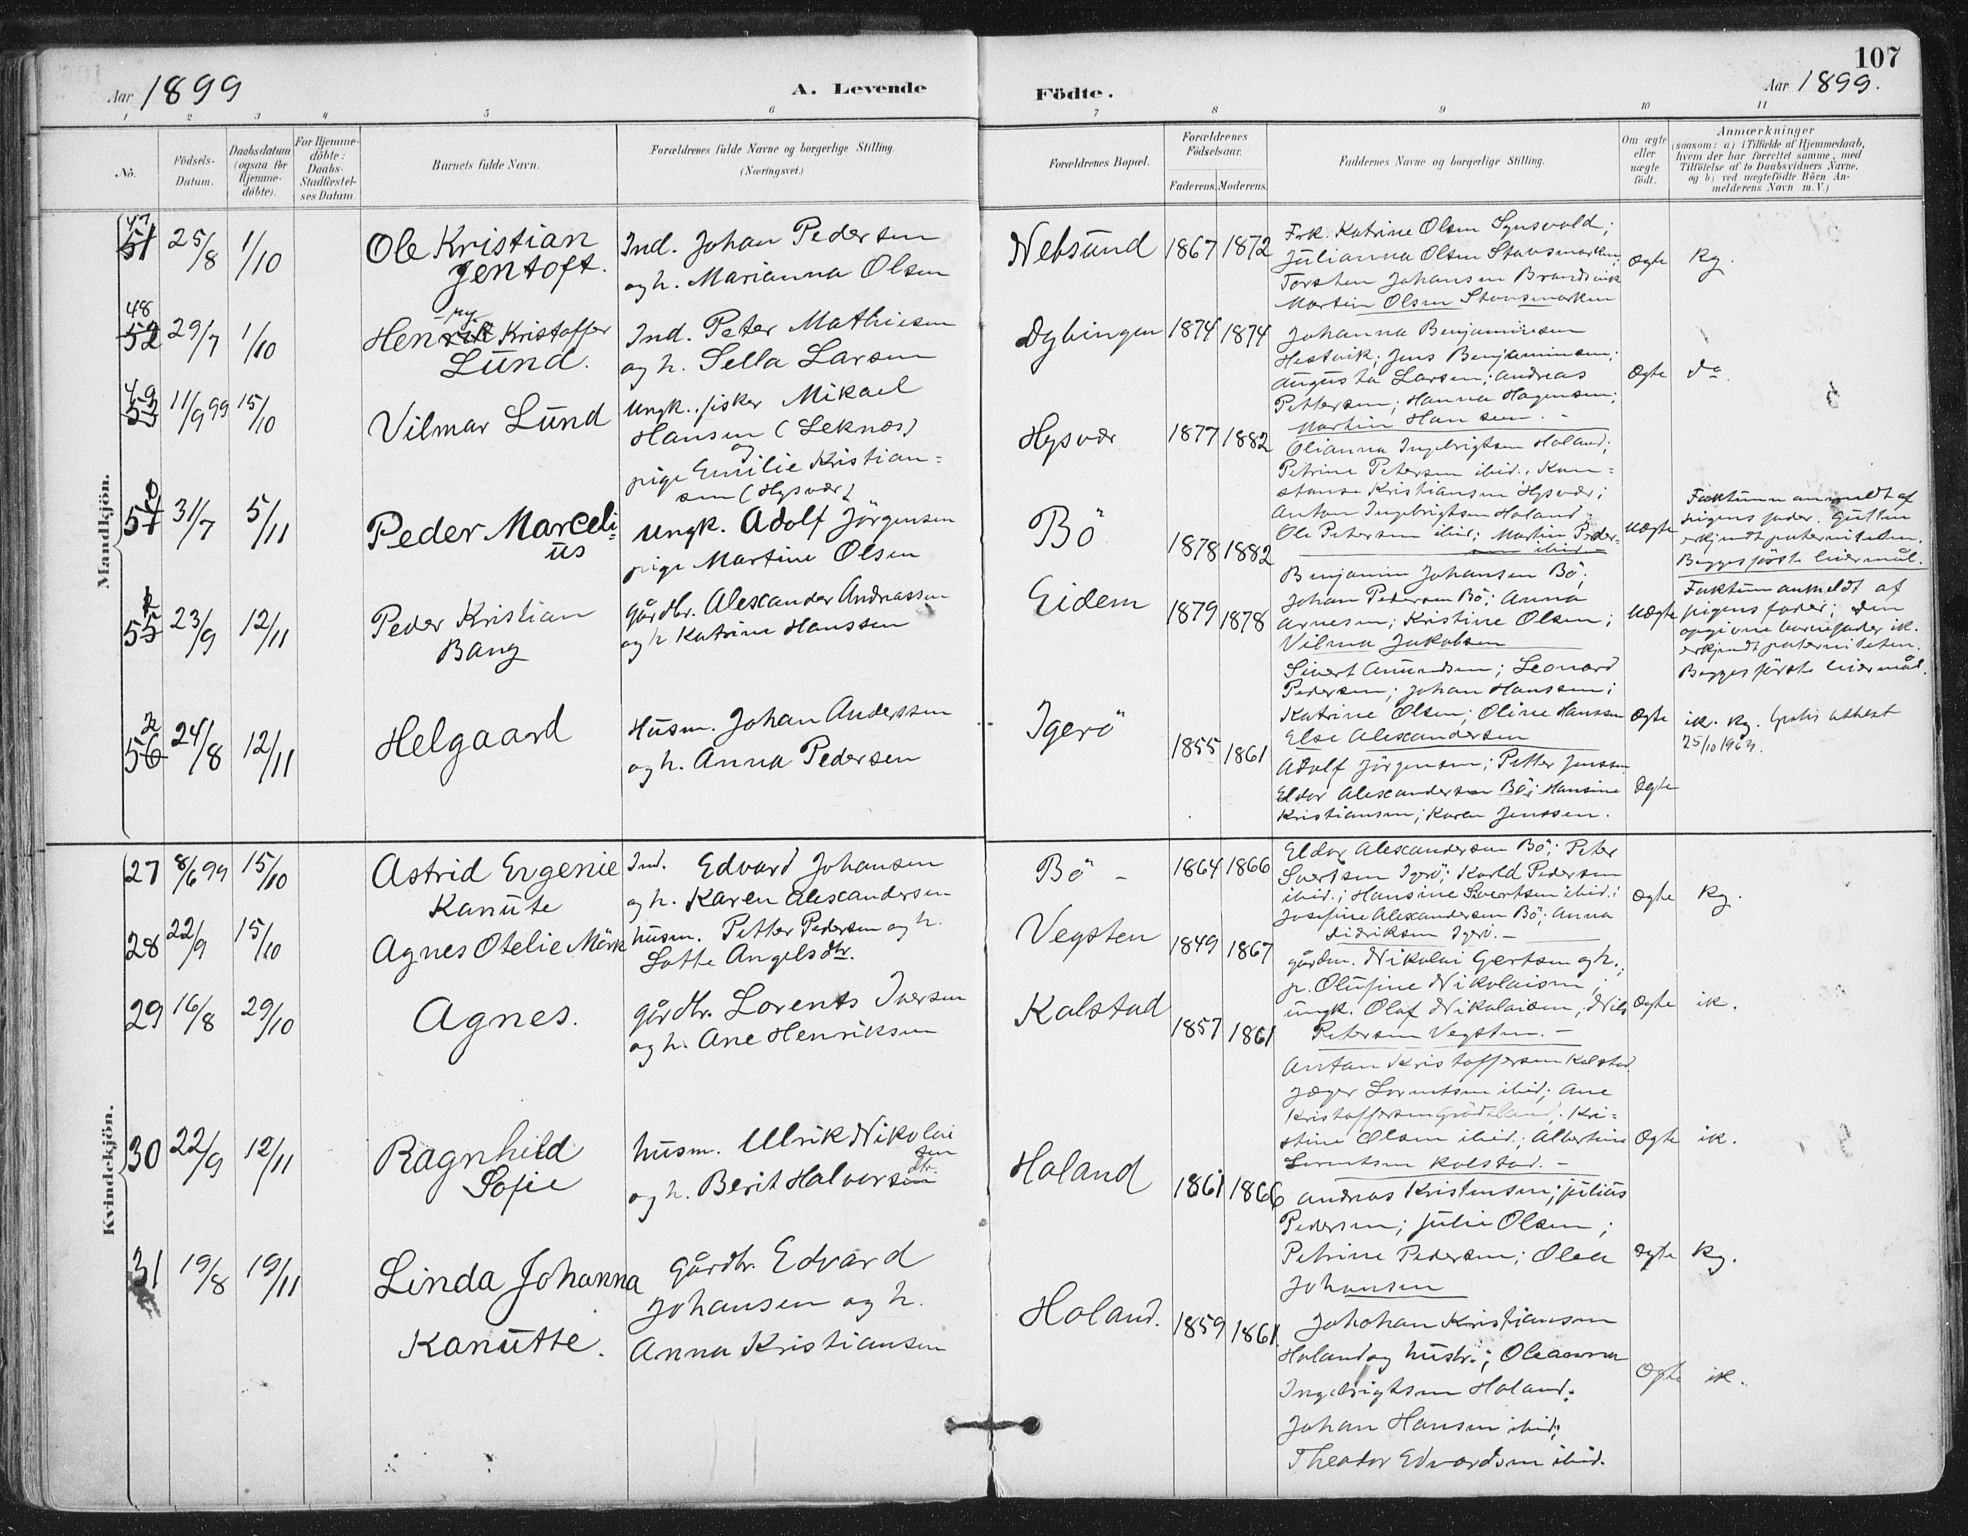 107
Aar 1899
A. Levende
Födte.
Aar 1899.
1 2 3 4 5 6 7 8 9 10 11
No.
Födsels-
Datum.
Daabsdatum
(ogsaa for
Hjemme-
döbte).
For Hjemme-
döbte:
Daabs-
Stadfæstel-
ses Datum.
Barnets fulde Navn.
Forældrenes fulde Navne og borgerlige Stilling
(Næringsvei.)
Forældrenes Bopæl.
Forældrenes
Födselsaar.
Faderens. Moderens.
Faddernes Navne og borgerlige Stilling.
Om ægte
eller
uægte
födt.
Anmærkninger
(saasom: a) i Tilfælde af Hjemmedaab,
hvem der har forrettet samme, med
Tilföielse af to Daabsvidners Navne,
og b) ved uægtefödte Börn An-
melderens Navn m. V.)
Mandkjön.
47
51 25/8 1/10
Ole Kristian
Jentoft.
Ind. Johan Pedersen
og h. Marianna Olsen
1867 1872
Frk. Katrine Olsen
Julianna Olsen
Torsten Johansen
Martin Olsen
Ægte
kg.
48
52 29/7 1/10
Kristoffer
Lund.
Ind. Peter Mathiesen
og h. Sella Larsen
Dybingen
1874 1874
Johanna Benjaminsen
Hestvik; Jens Benjaminsen;
Augusta Larsen; Andreas
Pettersen; Hanna Hagensen;
Martin Hansen. -
Ægte
do.
49
53 11/9 99 15/10
Vilmar Lund
Ungk., fisker Mikael
Hansen (Leknes)
og
pige Emilie Kristian=
sen (Hysvær)
Hysvær
1877 1882
Olianna Ingebrigtsen Holand;
Petrine Petersen ibid.; Kon=
stanse Kristiansen Hysvær;
Anton Ingebrigtsen Holand;
Ole Petersen ibid; Martin Peder-
sen ibid.
Uægte
Faktum anmeldt af
pigens fader. Gutten
erkjendt paterniteten.
Begges förste leiermål.
31/7 5/11
Peder Marceli=
us
Ungk. Adolf Jörgensen
pige Martine Olsen
Bö
1878 1882
Benjamin Johansen Bö;
Johan Pedersen Bö; Anna
Arnesen; Kristine Olsen;
Vilma Jakobsen
Uægte
Faktum anmeldt af
pigens fader; den
opgivne barnefader ik.
erkjendt paterniteten.
Begges förste leiermål.
55 23/9 12/11
Peder Kristian
Bang
gårdbr. Alexander Andreassen
og h. Katrine Hanssen
Eidem
1879 1878
Sivert Amundsen; Leonard
Pedersen; Johan Hanssen;
Katrine Olsen; Oline Hanssen
Else Alexandersen
Ægte
ik. kg. Gratis attest
56 24/8 12/11
Helgaard
Husm. Johan Anderssen
og h. Anna Pedersen
Igerö
1855 1861
Adolf Jörgensen; Petter Jenssen
Eldor Alexandersen Bö; Hansine
Kristiansen; Karen Jenssen.
Ægte
Kvindekjön.
27 8/6 99 15/10
Astrid Eugenie
Kanute
Ind. Edvard Johansen
og h. Karen Alexandersen
Bö -
1864 1866
Eldor Alexandersen Bö; Peter
Sivertsen Igerö; Karld Pedersen
ibid.; Hansine Sivertsen ibid.;
Josefine Alexandersen Bö; Anna
Didriksen Igerö. -
Ægte
kg.
28 22/9 15/10
Agnes Otelie Mörk
husm. Petter Pedersen og h.
Lotte Angelsdtr.
Vegsten
1849 1867
gårdm. Nikolai Gertsen og h.;
p. Olufine Nikolaisen;
ungk. Olaf Nikolaisen; Nils
Petersen Vegsten. -
Ægte
ik.
29 16/8 29/10
Agnes.
gårdbr. Lorents Iversen
og h. Ane Henriksen
Kalstad
1857 1861
Antan Kristoffersen Kalstad
Jæger Lorentsen ibid; Ane
Kristoffersen Grödtland; Kri=
stine Olsen ibid.; Albertine
Lorentsen Kalstad. -
Ægte
ik.
30 22/9 12/11
Ragnhild
Sofie
husm. Ulrik Nikolai
sen
og h. Berit Halvorsen
dtr.
Holand
1861 1866
Andreas Kristensen; Julius
Pedersen; Julie Olsen;
Petrine Pedersen; Olea
Johansen
Ægte
kg.
31 19/8 19/11
Linda Johanna
Kanutte.
gårdbr. Edvard
Johansen og h.
Anna Kristiansen
Holand.
1859 1861
Johohan Kristiansen
Holand og hustr.; Oleanna
Ingebrigtsen Holand;
Johan Hansen ibid;
Theodor Edvardsen ibid.
Ægte
ik.